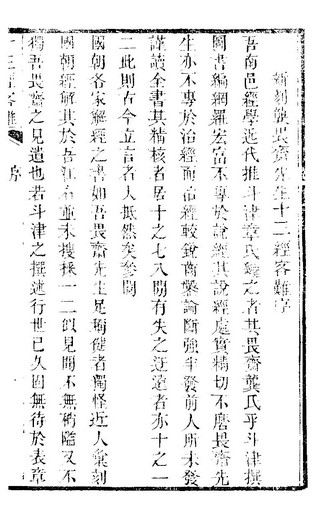 新刻龔畏齋先生十三經客難序
吾南邑經學近代推斗津章氏繼之者其畏齋龔氏乎斗津撰
圖書編網羅宏富不專於說經其說經處實精切不磨畏齋先
生亦不專於治經而治經較銳商榷論斷強半發前人所未發
謹讀全書其精核者居十之七八間有失之迂遠者亦十之一
二此則古今立言者大抵然矣參閱
國朝各家解經之書如吾畏齋先生足稱健者獨怪近人彙刻
國朝經解其於吾江右並未搜採一二似見聞不無稍隘又不
獨吾畏齋之見遺也若斗津之撰述行世已久固無待於表章
十三經客難
序